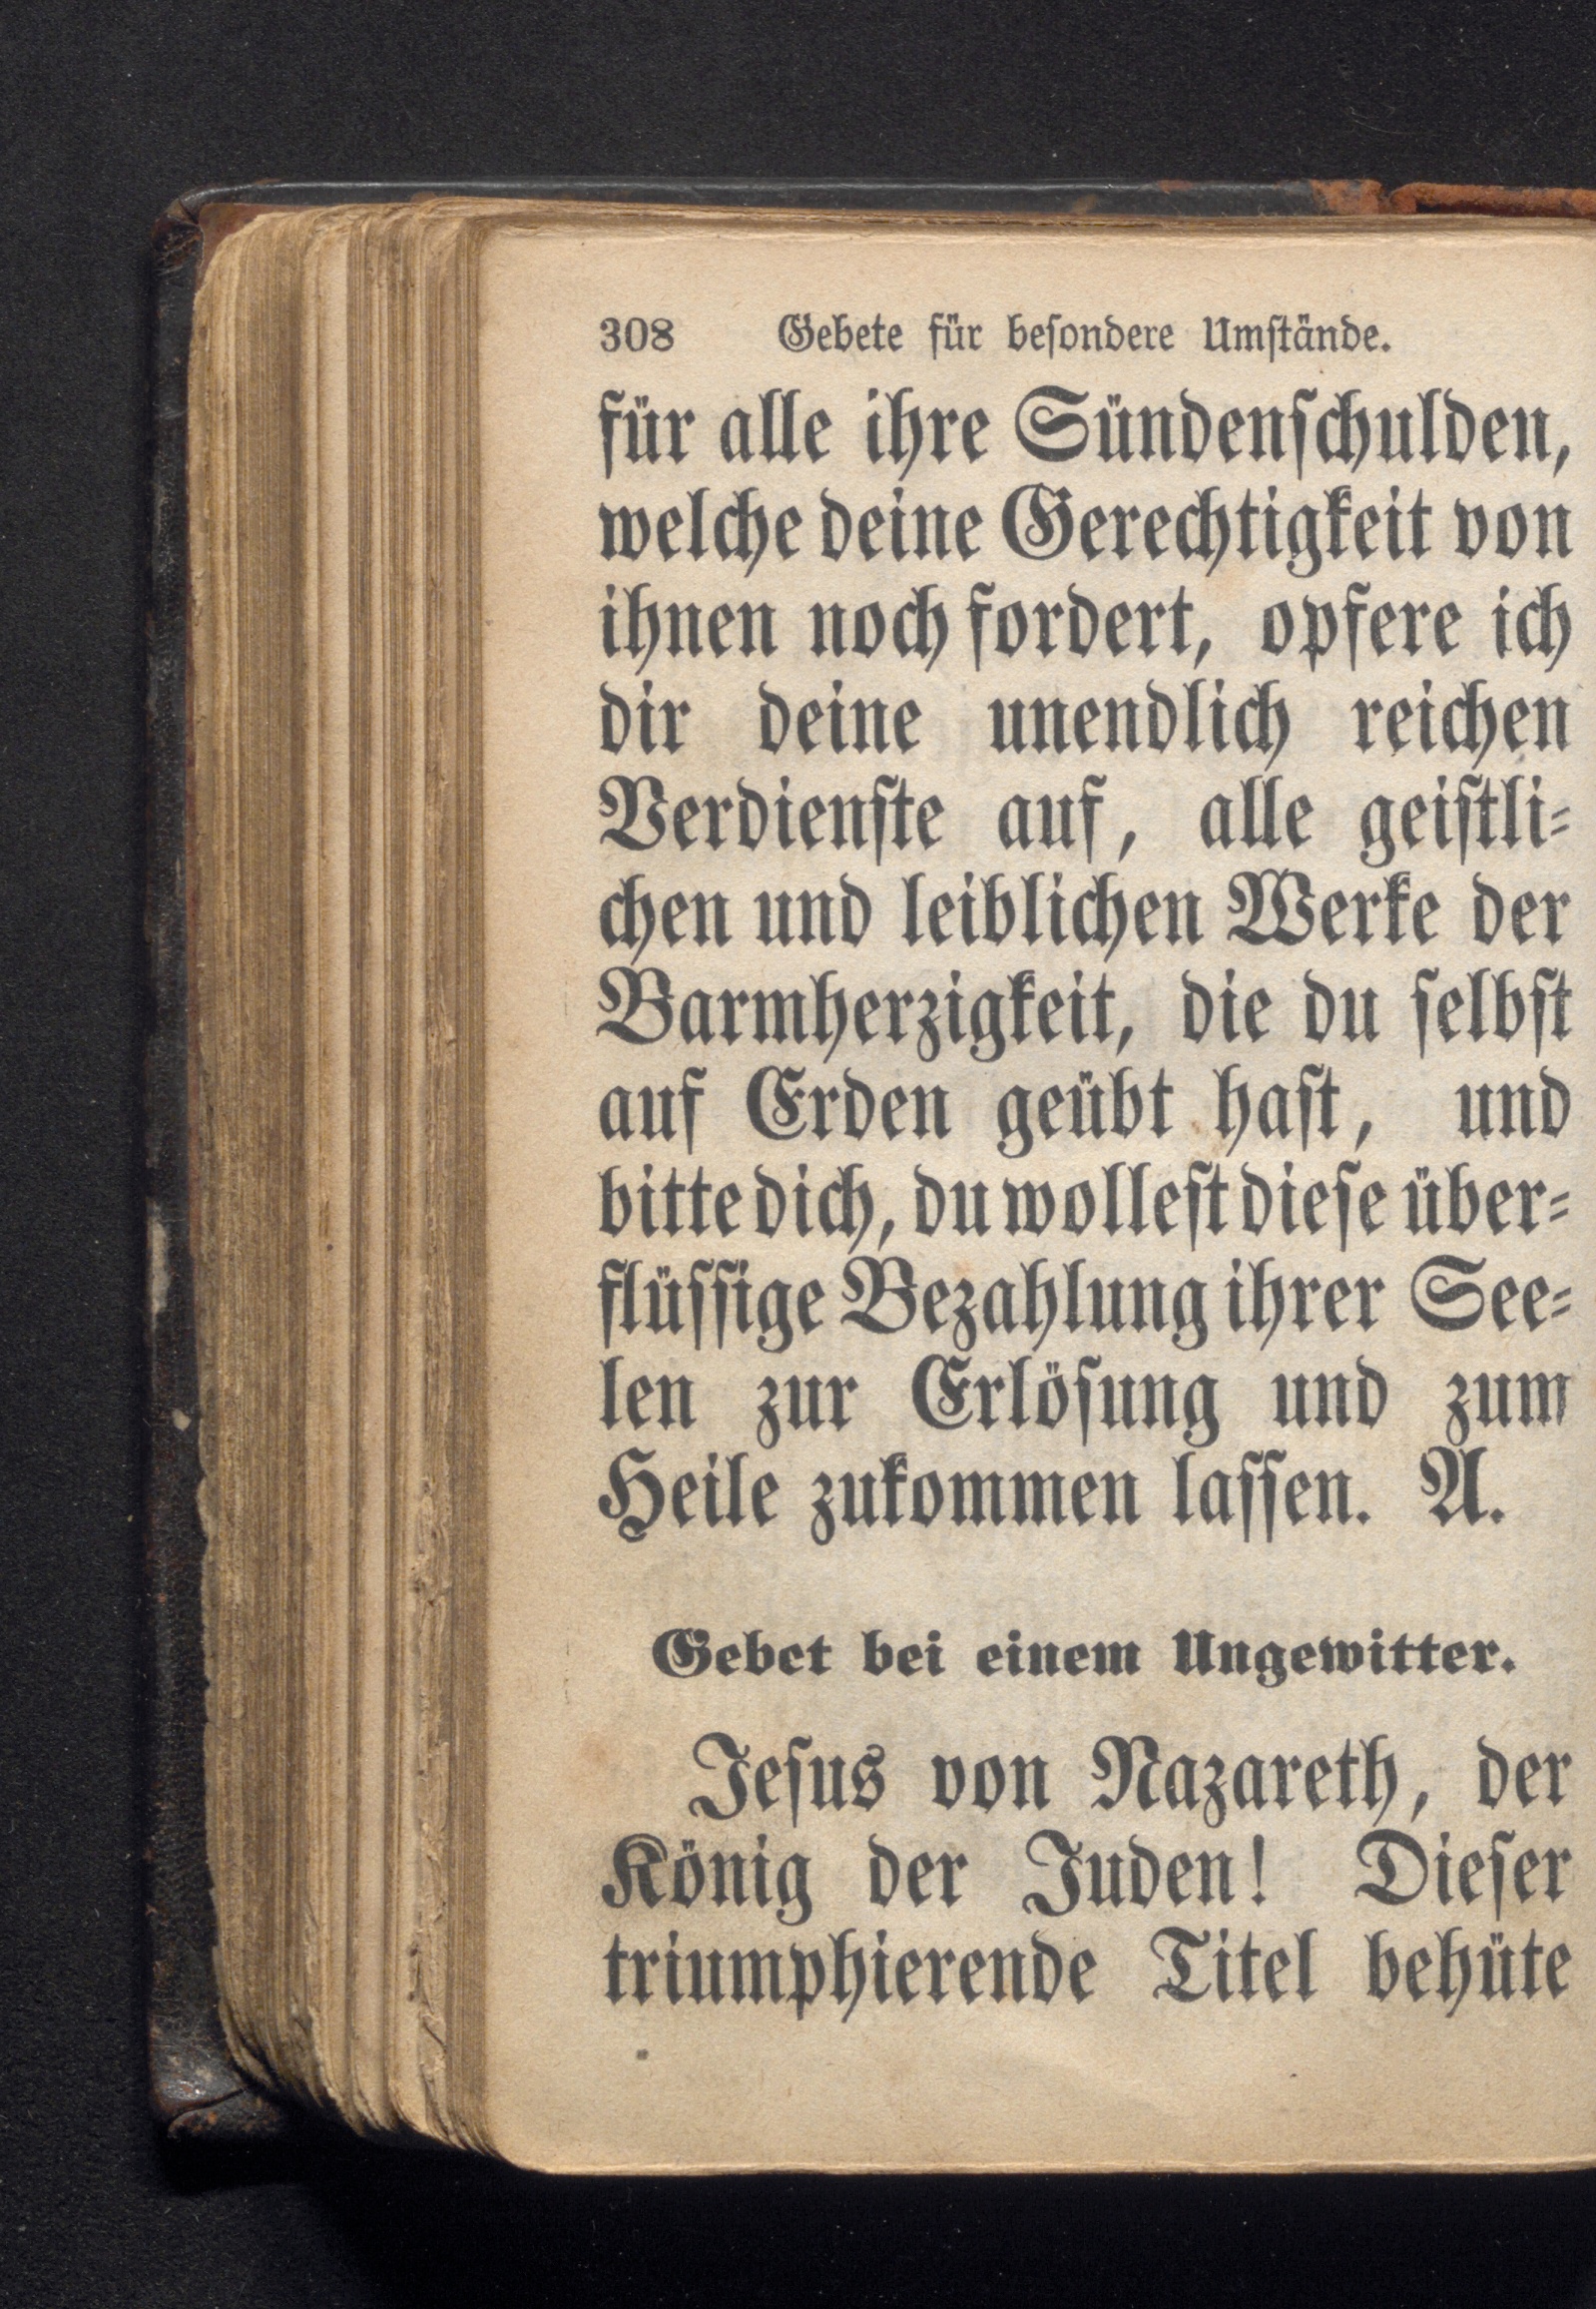 308 Gebete für beſondere Umſtände.
für alle ihre Sündenſchulden,
welche deine Gerechtigkeit von
ihnen noch fordert, opfere ich
dir deine unendlich reichen
Verdienſte auf, alle geiſtli⸗
chen und leiblichen Werke der
Barmherzigkeit, die du ſelbſt
auf Erden geübt haſt, und
bitte dich, du wolleſt dieſe über⸗
flüſſige Bezahlung ihrer See⸗
len zur Erlöſung und zum
Heile zukommen laſſen. A.
Gebet bei einem Ungewitter.
Jeſus von Nazareth, der
König der Juden! Dieſer
triumphierende Titel behüte